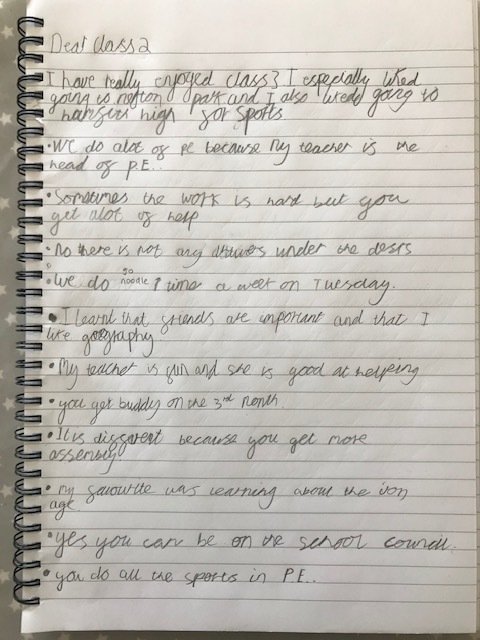 Dear Class 2
I have really enjoyed class 3 I especially liked
going to park and I also liked going to
high for sports
• We do alot of pe because my teacher is the
head of P.E..
• Sometimes the work is hard but you
get alot of help
• No there is not any drawers under the desks
• We do go noodle 1 time a week on Tuesday.
• I learnt that friends are important and that I
like geography
• My teacher is fun and she is good at helping
• you get buddy on the 3rd month.
• It is different because you get more
assembly.
• my favourite was learning about the iron
age
• yes you can be on the school council.
• you do all the sports in P.E..